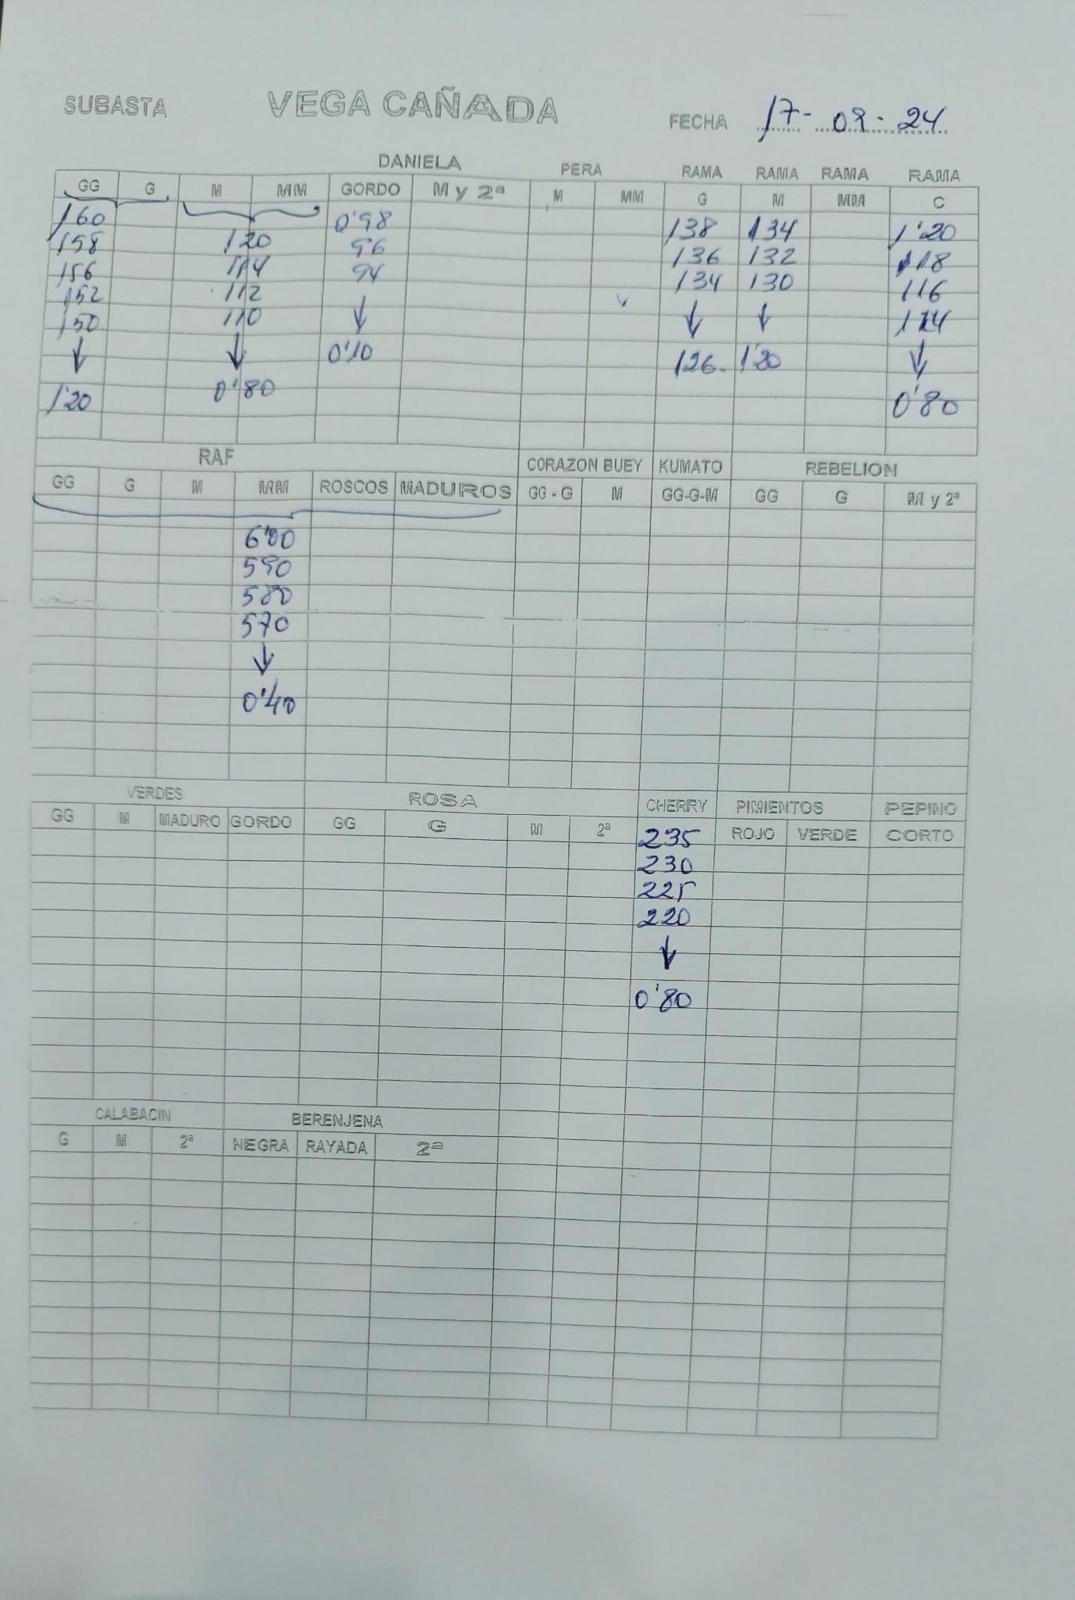 SUBASTA VEGA CAÑADA FECHA 17-02-24
DANIELA PERA RAMA RAMA RAMA RAMA
GG G M MM GORDO M y 2ª M MM G M MM C
160 0'98 138 134 1'20
158 120 96 136 132 118
156 114 94 134 130 116
152 112 ↓ ↓ ↓ 114
150 110 0'10 126. 1'20 ↓
↓ ↓ 0'80
1'20 0'80
RAF CORAZON BUEY KUMATO REBELION
GG G M MM ROSCOS MADUROS GG - G M GG-G-M GG G M y 2ª
6'00
590
580
570
↓
0'40
VERDES ROSA CHERRY PIMIENTOS PEPINO
GG M MADURO GORDO GG G M 2ª ROJO VERDE CORTO
235
230
225
220
↓
0'80
CALABACIN BERENJENA
G M 2ª NEGRA RAYADA 2ª